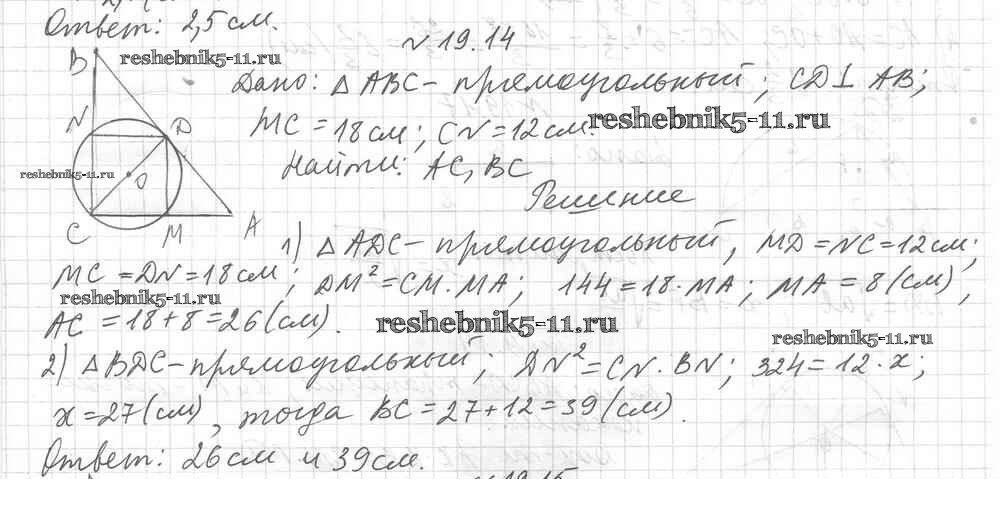 Ответ: 2,5 см.
№ 19.14
B
reshebnik5-11.ru
Дано: △ ABC – прямоугольный; CD⊥ AB;
N
D
MC = 18 см; CN = 12 см.
reshebnik5-11.ru
reshebnik5-11.ru
O
Найти: AC, BC
Решение
C
M
A
1) △ ADC – прямоугольный, MD = NC = 12 см;
MC = DN = 18 см; DM² = CM · MA; 144 = 18 · MA; MA = 8 (см),
reshebnik5-11.ru
AC = 18 + 8 = 26 (см).
reshebnik5-11.ru
reshebnik5-11.ru
2) △ BDC – прямоугольный; DN² = CN · BN; 324 = 12 · x;
x = 27 (см), тогда BC = 27 + 12 = 39 (см).
Ответ: 26 см и 39 см.